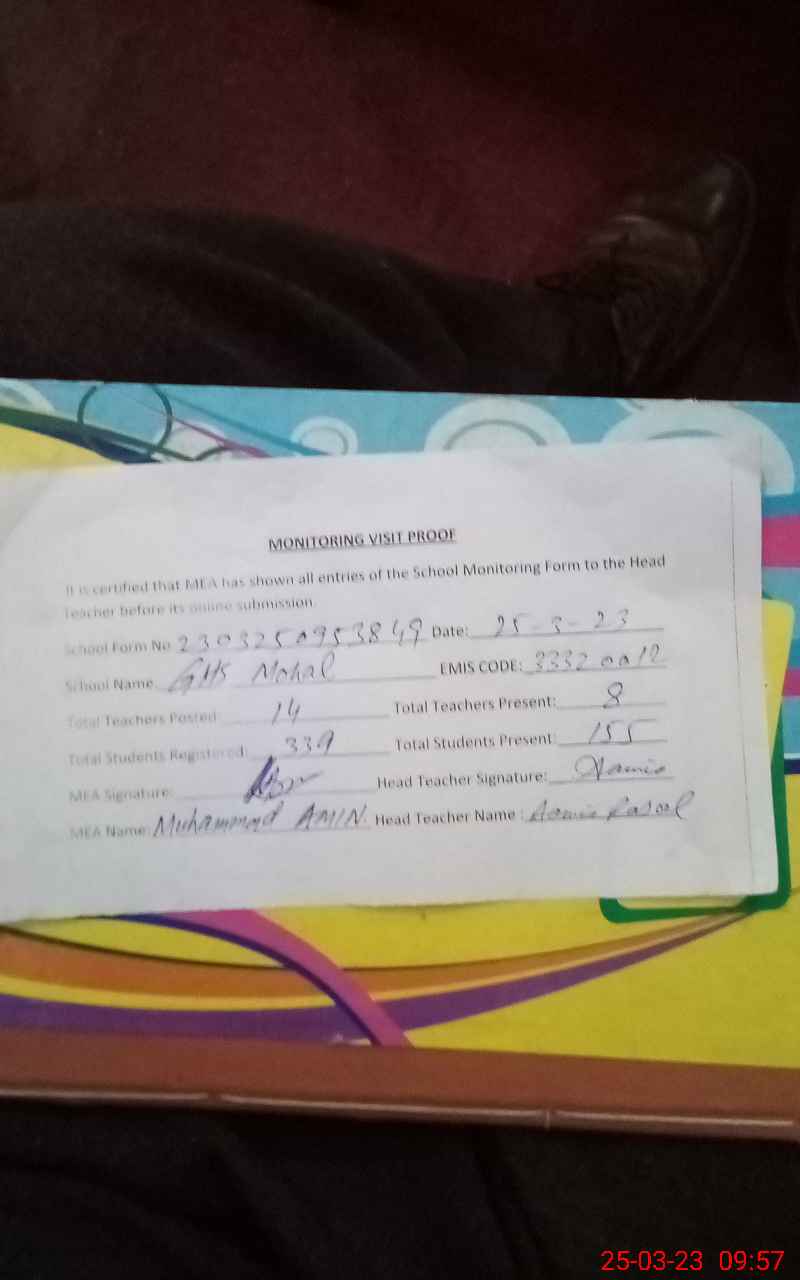 MONITORING VISIT PROOF
It is certified that MEA has shown all entries of the School Monitoring Form to the Head
Teacher before its online submission.
School Form No 2303250953849 Date: 25-3-23
School Name GHS Mohal EMIS CODE: 33320012
Total Teachers Posted: 14 Total Teachers Present: 8
Total Students Registered: 339 Total Students Present: 155
MEA Signature: Head Teacher Signature:
MEA Name: Muhammad AMIN. Head Teacher Name : Rasool
25-03-23 09:57